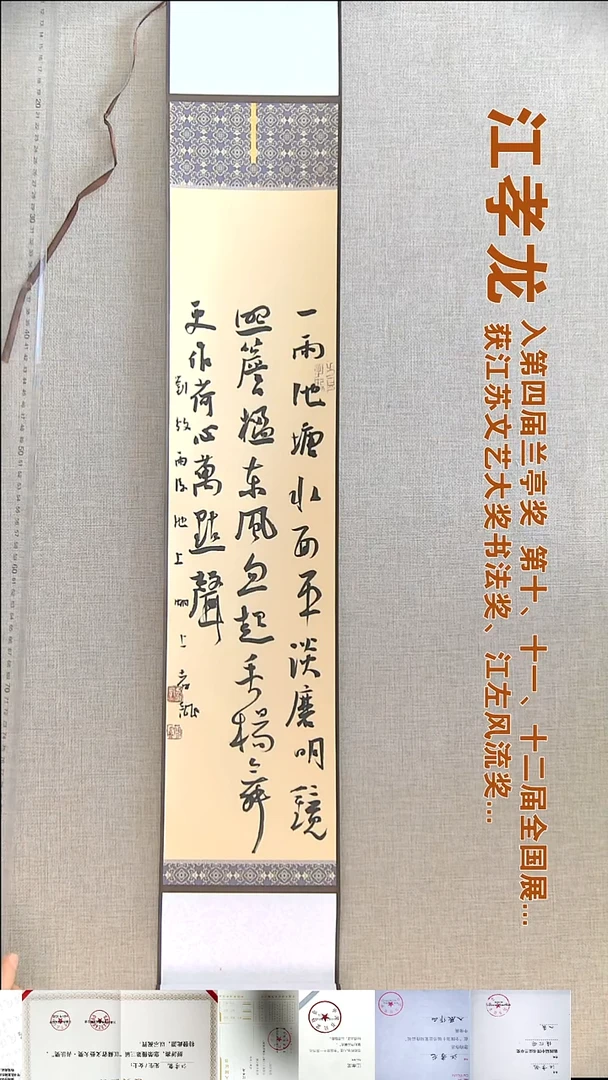 江孝龙
入第四届兰亭奖 第十、十一、十二届全国展...
获江苏文艺大奖书法奖、江左风流奖...
一雨池塘水面平淡磨明鏡
照簷楹東風忽起垂楊舞
更作荷心萬點聲
劉攽雨後池上 湖上 孝龍